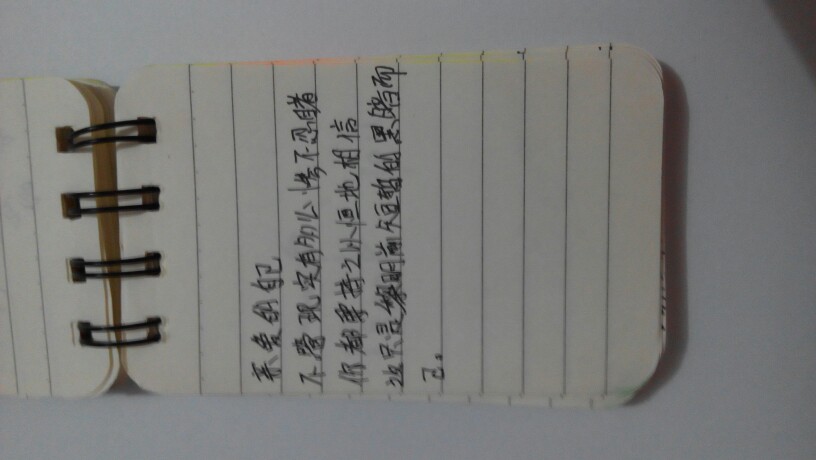 亲爱的自己
不管现实有多么惨不忍睹
你都要持之以恒地相信
这只是黎明前短暂的黑暗而
已。